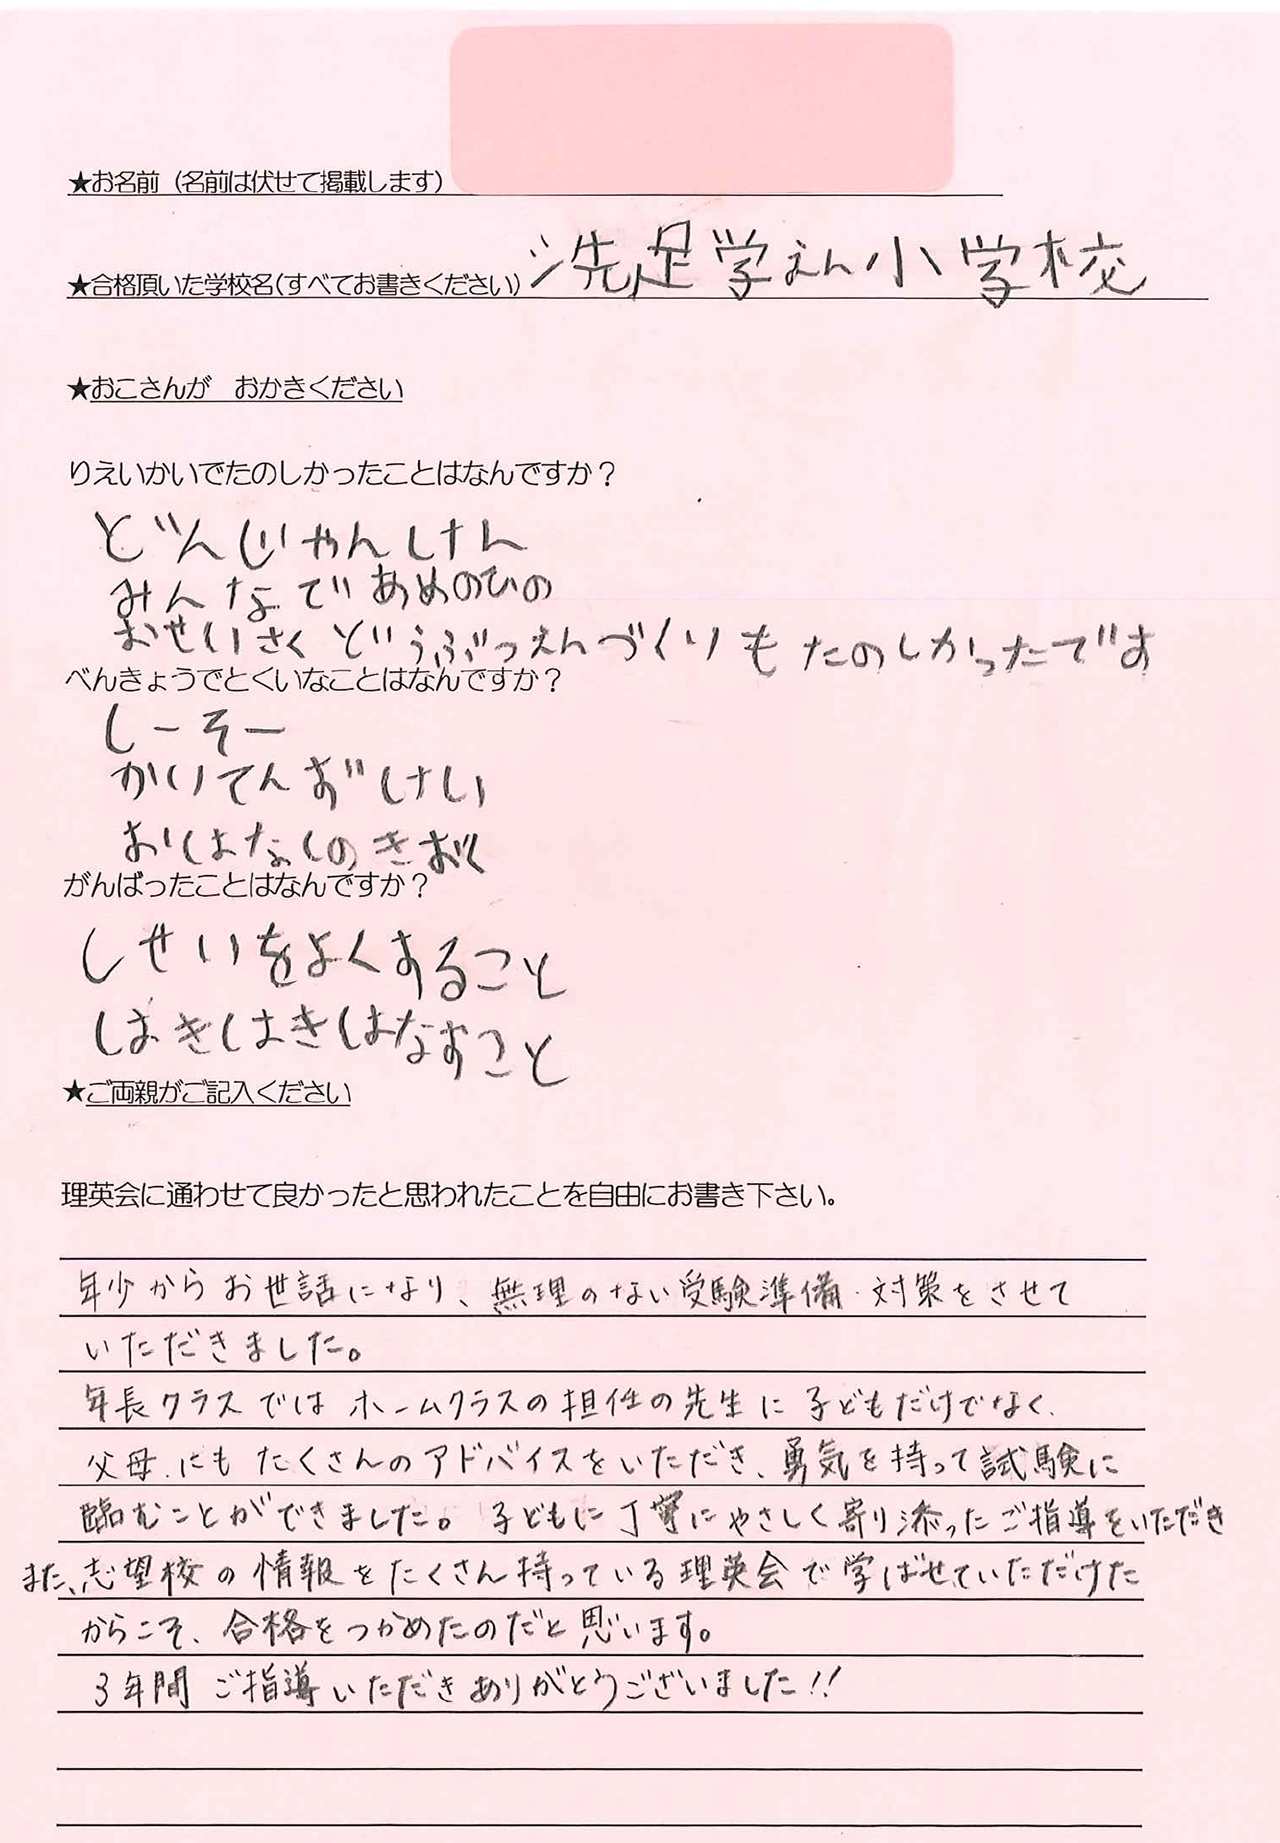 ★お名前（名前は伏せて掲載します）
★合格頂いた学校名(すべてお書きください) 洗足学えん小学校
★おこさんが　おかきください
りえいかいでたのしかったことはなんですか？
どんじゃんけん
みんなであめのひの
おせいさくどうぶつえんづくりもたのしかったです
べんきょうでとくいなことはなんですか？
しーそー
かいてんずけい
おはなしのきおく
がんばったことはなんですか？
しせいをよくすること
はきはきはなすこと
★ご両親がご記入ください
理英会に通わせて良かったと思われたことを自由にお書き下さい。
年少からお世話になり、無理のない受験準備・対策をさせて
いただきました。
年長クラスではホームクラスの担任の先生に子どもだけでなく、
父母にもたくさんのアドバイスをいただき、勇気を持って試験に
臨むことができました。子どもに丁寧にやさしく寄り添ったご指導をいただき
また、志望校の情報をたくさん持っている理英会で学ばせていただけた
からこそ、合格をつかめたのだと思います。
3年間ご指導いただきありがとうございました!!